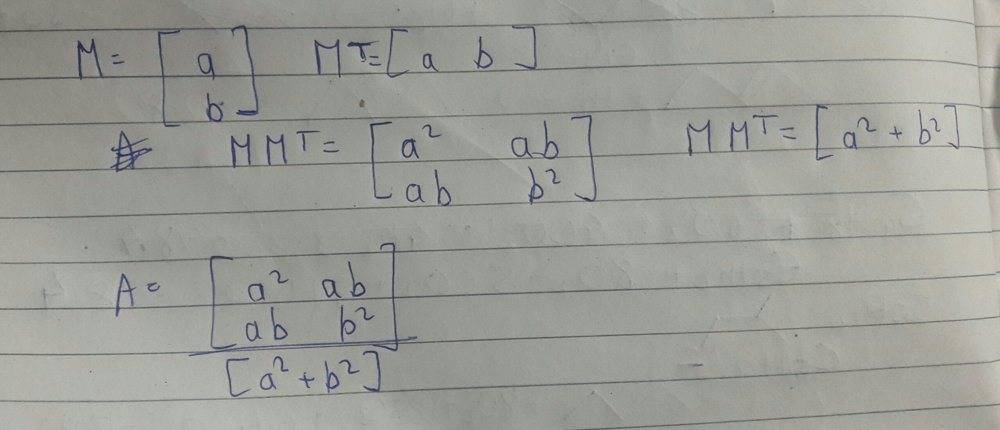 M = [ a ; b ] M^T = [ a b ]
M M^T = [ a² ab ; ab b² ] M M^T = [ a² + b² ]
A = [ a² ab ; ab b² ] / [ a² + b² ]